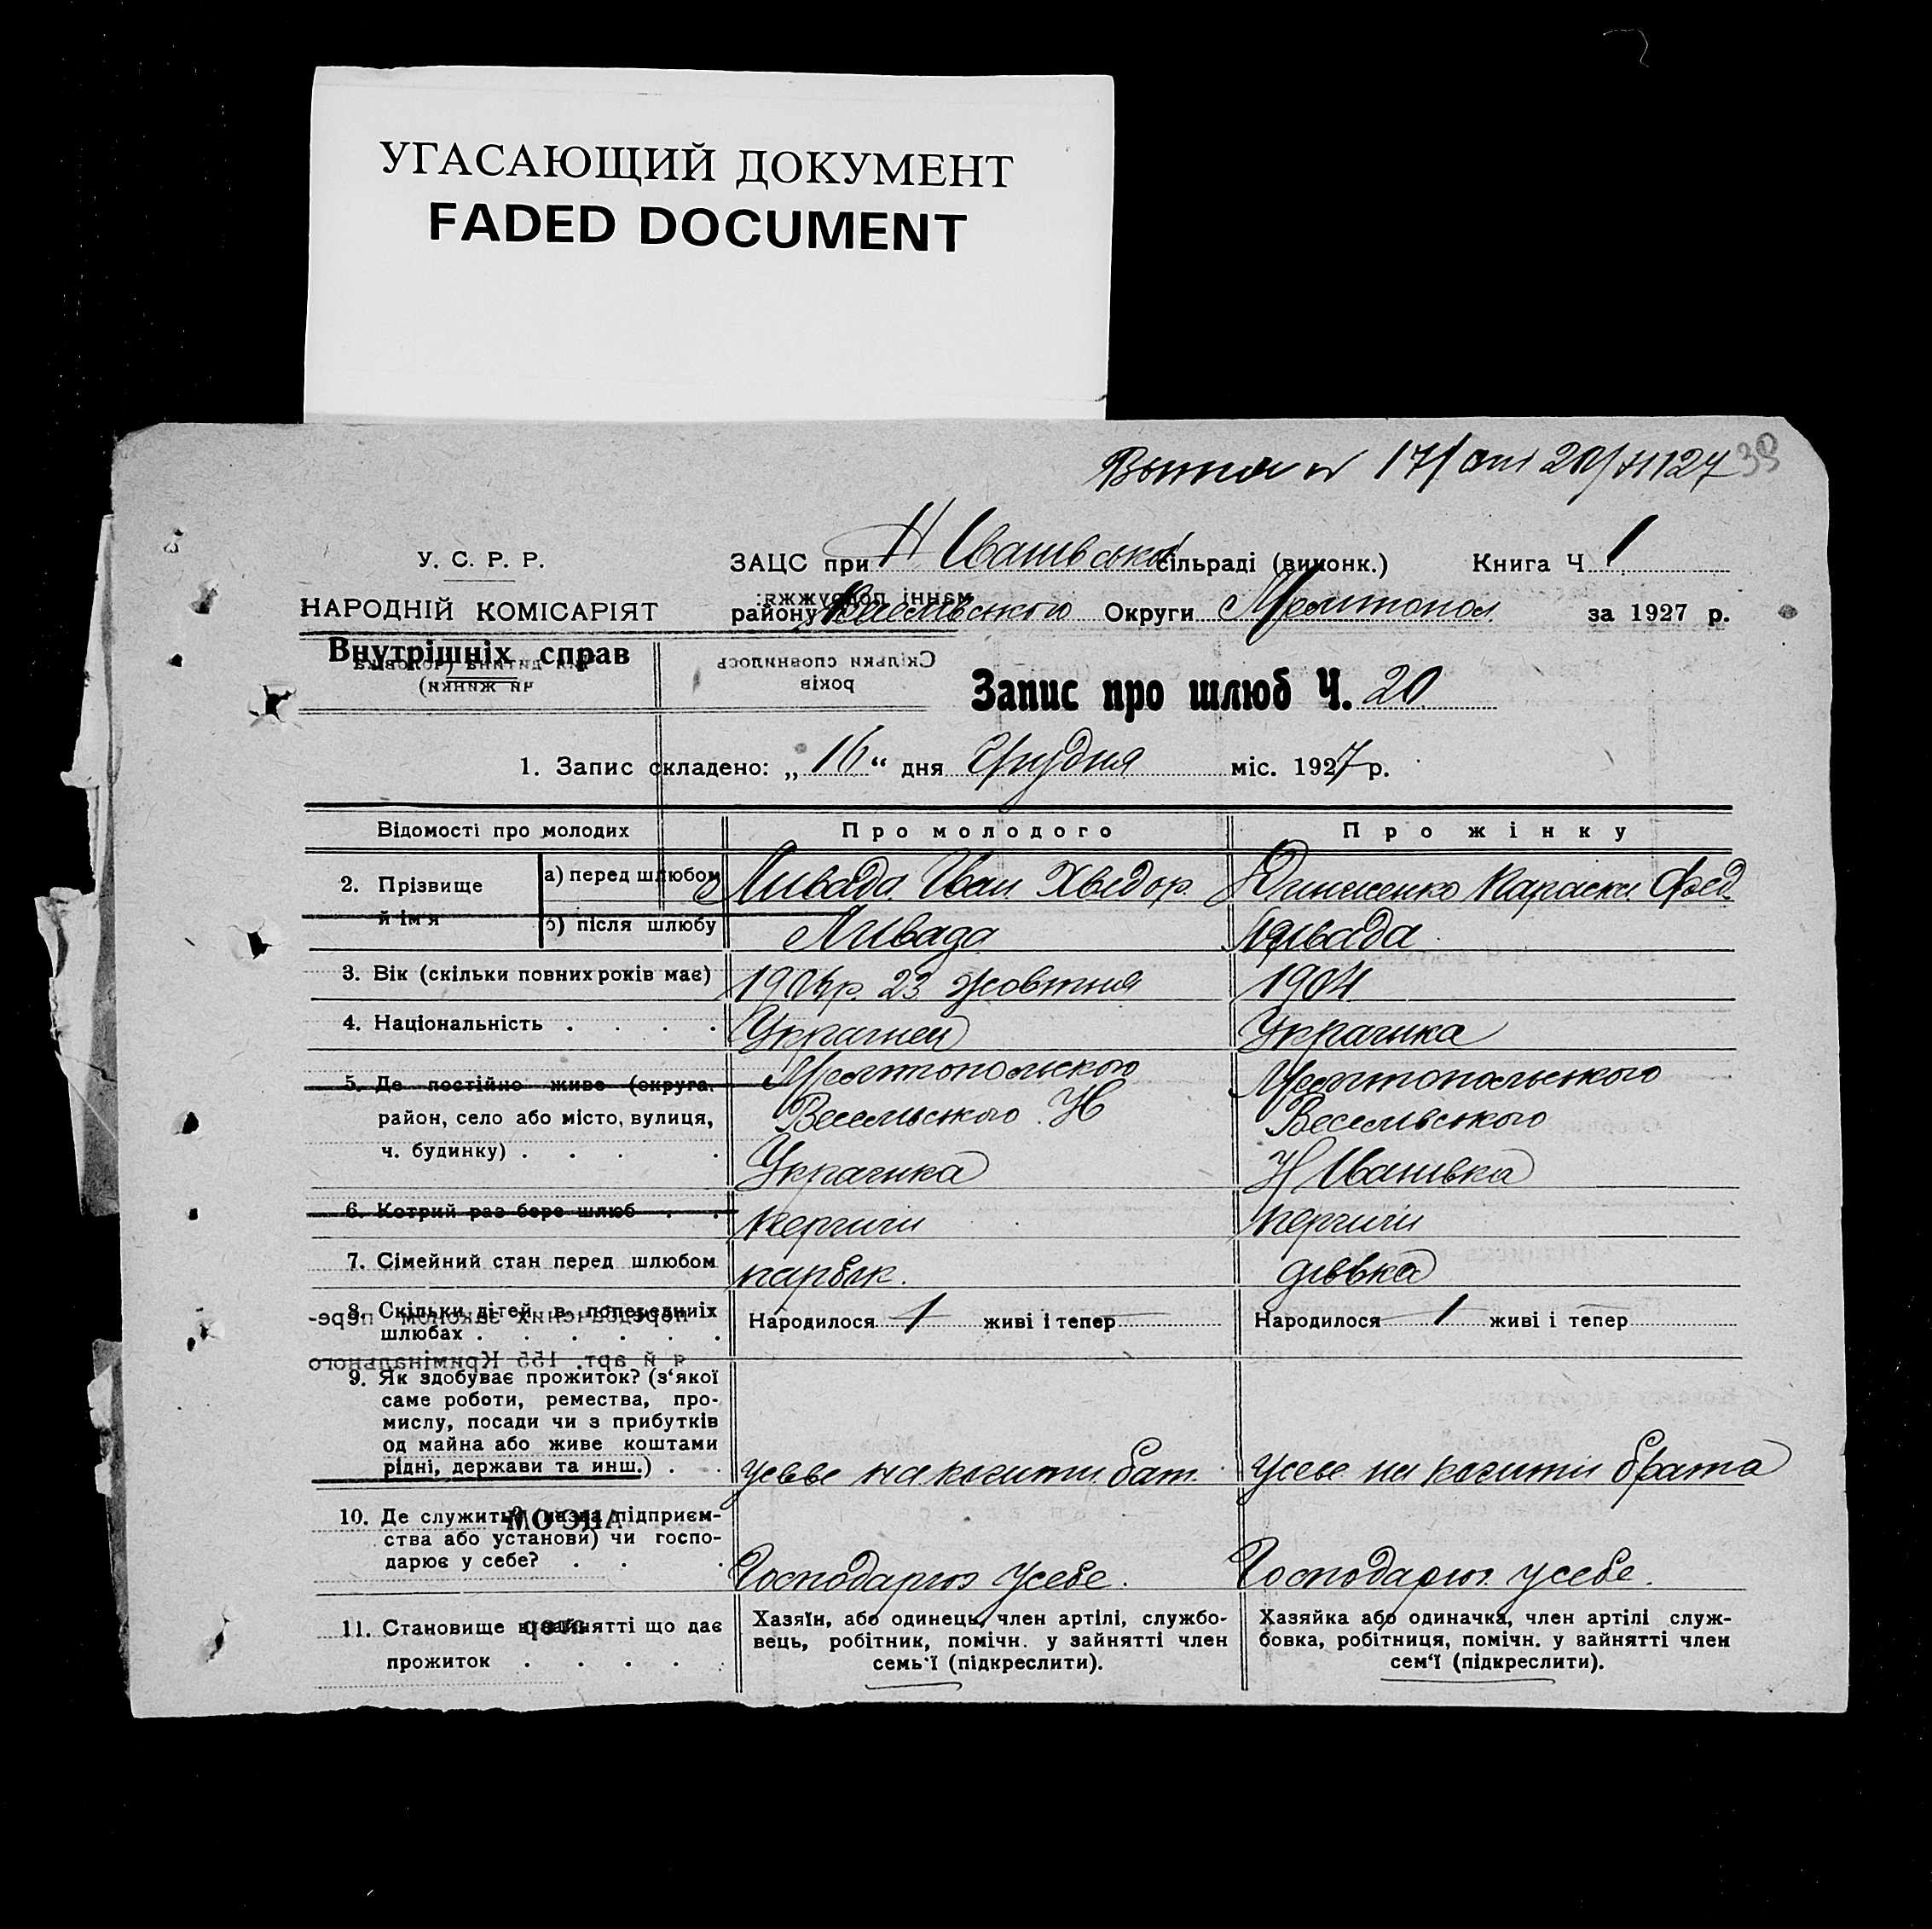 УГАСАЮЩИЙ ДОКУМЕНТ
FADED DOCUMENT
38
У. С. Р. Р.
НАРОДНІЙ КОМІСАРІЯТ
Внутрішніх справ
ЗАЦС при Н Іванівській сільраді (виконк.) Книга Ч 1
району Веселівського Округи Мелитопол за 1927 р.
Запис про шлюб Ч. 20
1. Запис складено: „16“ дня Грудня міс. 1927 р.
Відомості про молодих Про молодого Про жінку
2. Прізвище й ім'я
а) перед шлюбом Ливада Іван Хведор. Параски Фед.
б) після шлюбу Ливада Ливада
3. Вік (скільки повних років має) 1904р. 23 жовтня 1904
4. Національність . . . . Українец Українка
5. Де постійно живе (округа, Мелитопольского Мелитопольського
район, село або місто, вулиця, Веселівського Н Веселівського
ч. будинку) . . . . Українка Н Іванівка
6. Котрий раз бере шлюб . . перший перший
7. Сімейний стан перед шлюбом парубок. дівка
8. Скільки дітей в попередніх Народилося живі і тепер Народилося живі і тепер
шлюбах . . . . . .
9. Як здобуває прожиток? (з‘якої
саме роботи, ремества, про-
мислу, посади чи з прибутків
од майна або живе коштами
рідні, держави та инш.) . . на кошти бат. на кошти брата
10. Де служить? (назва підприєм-
ства або установи) чи госпо-
дарює у себе? . . . Господарює усебе. Господарює усебе.
11. Становище в зайнятті що дає
прожиток . . . . .
Хазяїн, або одинець, член артілі, службо-
вець, робітник, помічн. у зайнятті член
семь‘ї (підкреслити).
Хазяйка або одиначка, член артілі служ-
бовка, робітниця, помічн. у зайнятті член
сем‘ї (підкреслити).